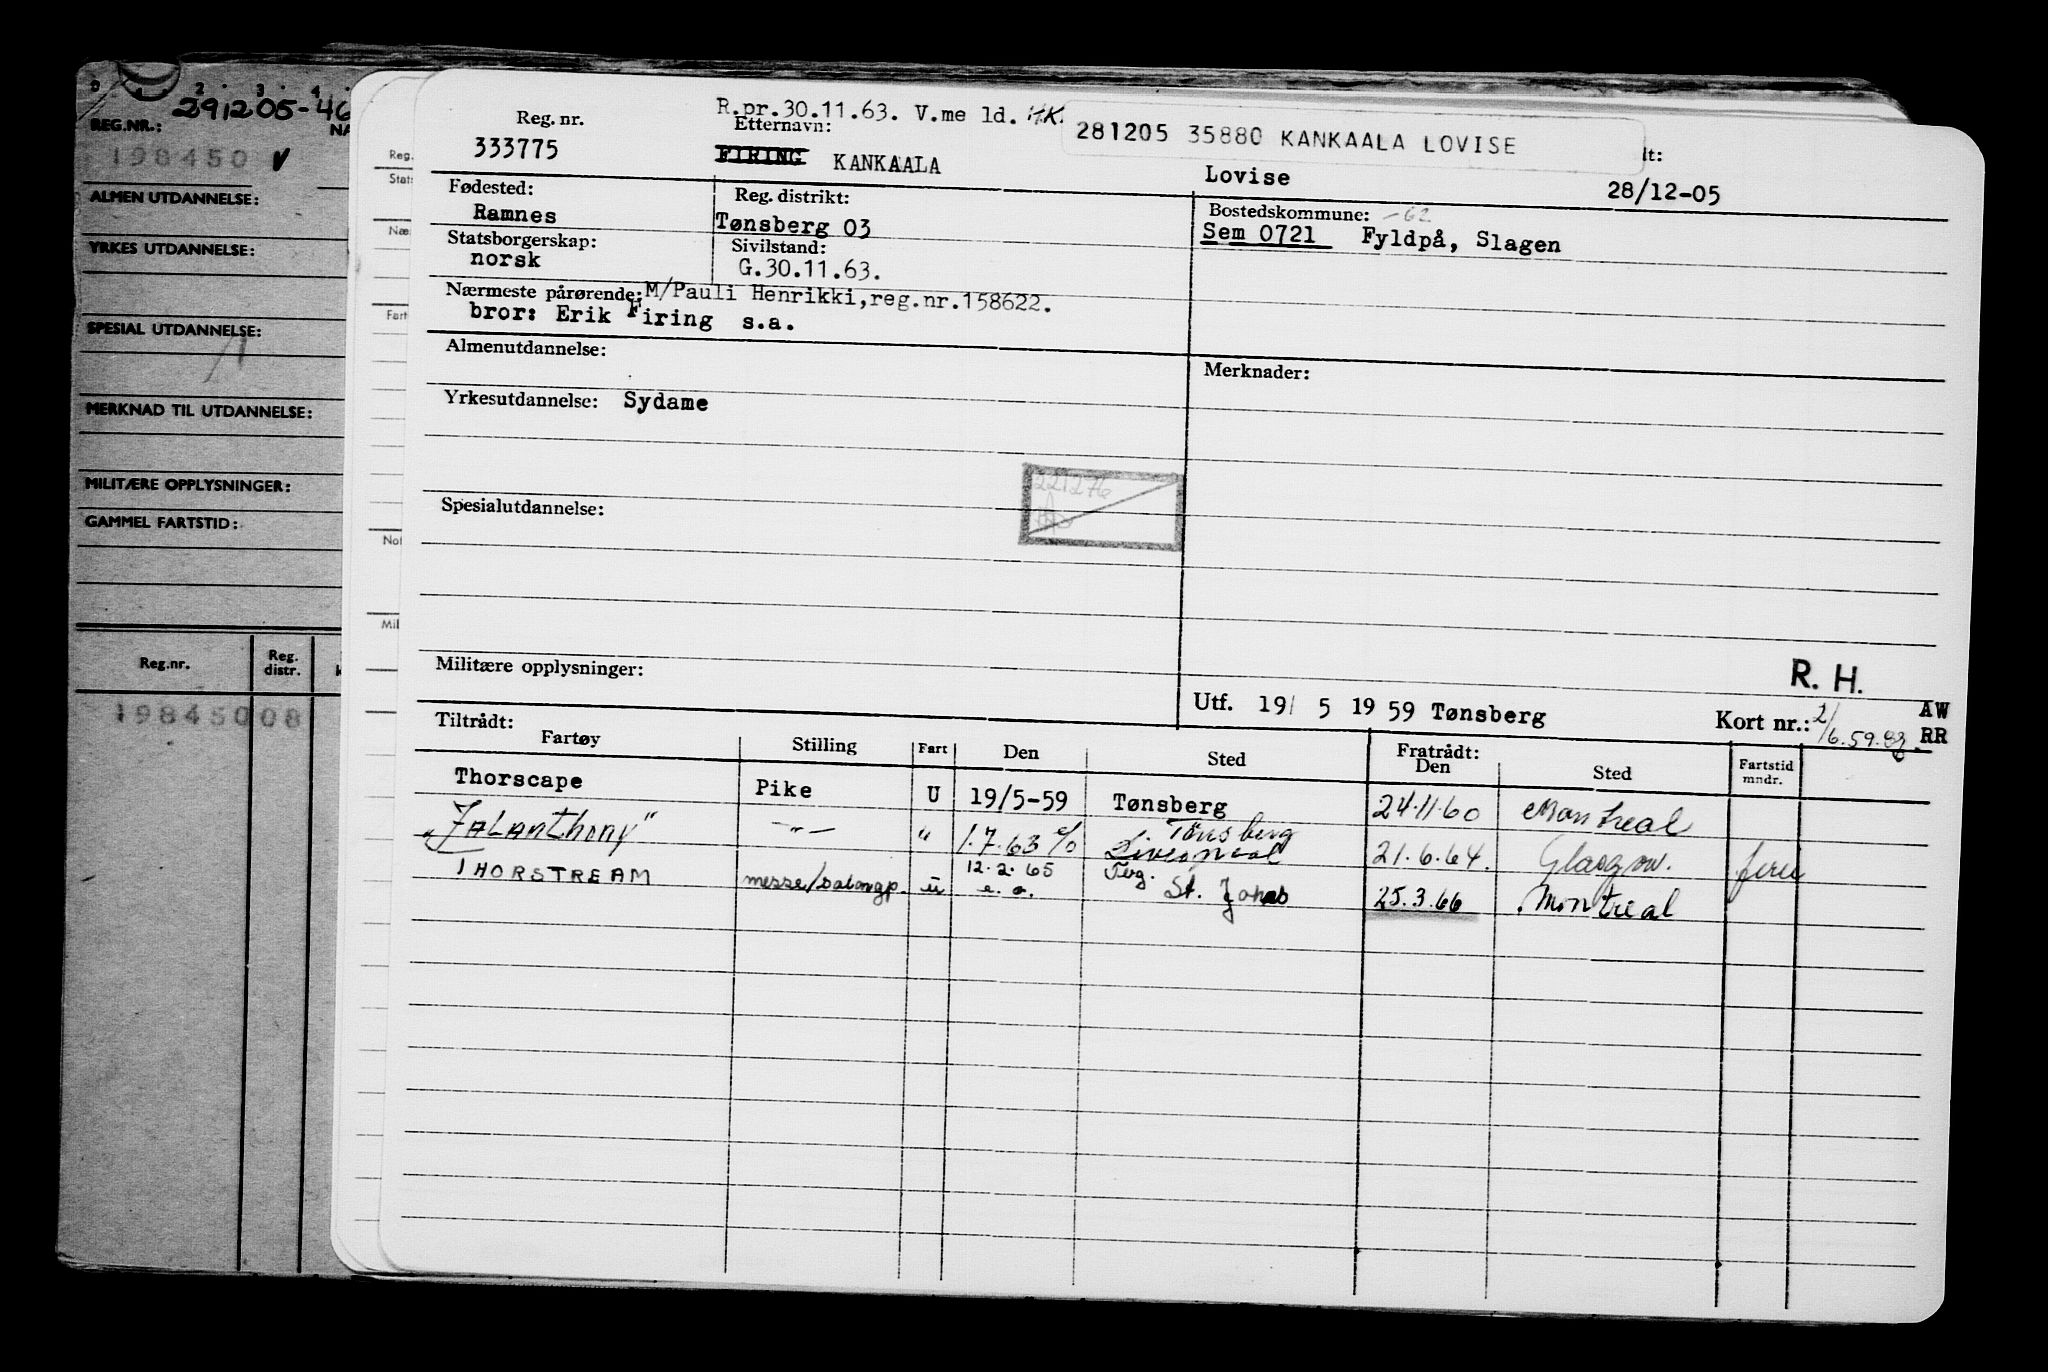 291205-46
REG.NR.:
NA
198450 V
ALMEN UTDANNELSE:
YRKES UTDANNELSE:
SPESIAL UTDANNELSE:
MERKNAD TIL UTDANNELSE:
MILITÆRE OPPLYSNINGER:
GAMMEL FARTSTID:
Reg.nr.
Reg. distr.
198450 08
Reg.
Stats
Næ
Fart
Not
Mil
R.pr.30.11.63. V.me ld. H.K.
281205 35880 KANKAALA LOVISE
Reg. nr.
Etternavn:
dt:
333775
FIRING KANKAALA
Lovise
28/12-05
Fødested:
Ramnes
Reg. distrikt:
Tønsberg 03
Bostedskommune: -62
Sem 0721 Fyldpå, Slagen
Statsborgerskap:
norsk
Sivilstand:
G.30.11.63.
Nærmeste pårørende: M/Pauli Henrikki,reg.nr.158622.
bror: Erik Firing s.a.
Almenutdannelse:
Merknader:
Yrkesutdannelse: Sydame
221276
Spesialutdannelse:
Militære opplysninger:
R. H.
Utf. 19/ 5 19 59 Tønsberg
Kort nr.: 2/6.59.
AW
RR
Tiltrådt:
Fartøy
Stilling
Fart
Den
Sted
Fratrådt:
Den
Sted
Fartstid mndr.
Thorscape Pike U 19/5-59 Tønsberg 24.11.60 Montreal
"Jalanthony" -"- " 1.7.63 e/o Tönsberg Liverpool 21.6.64. Glasgow. ferie
THORSTREAM messe/salongp. u 12.2.65 e.o. Tbg. St. Johns 25.3.66 Montreal